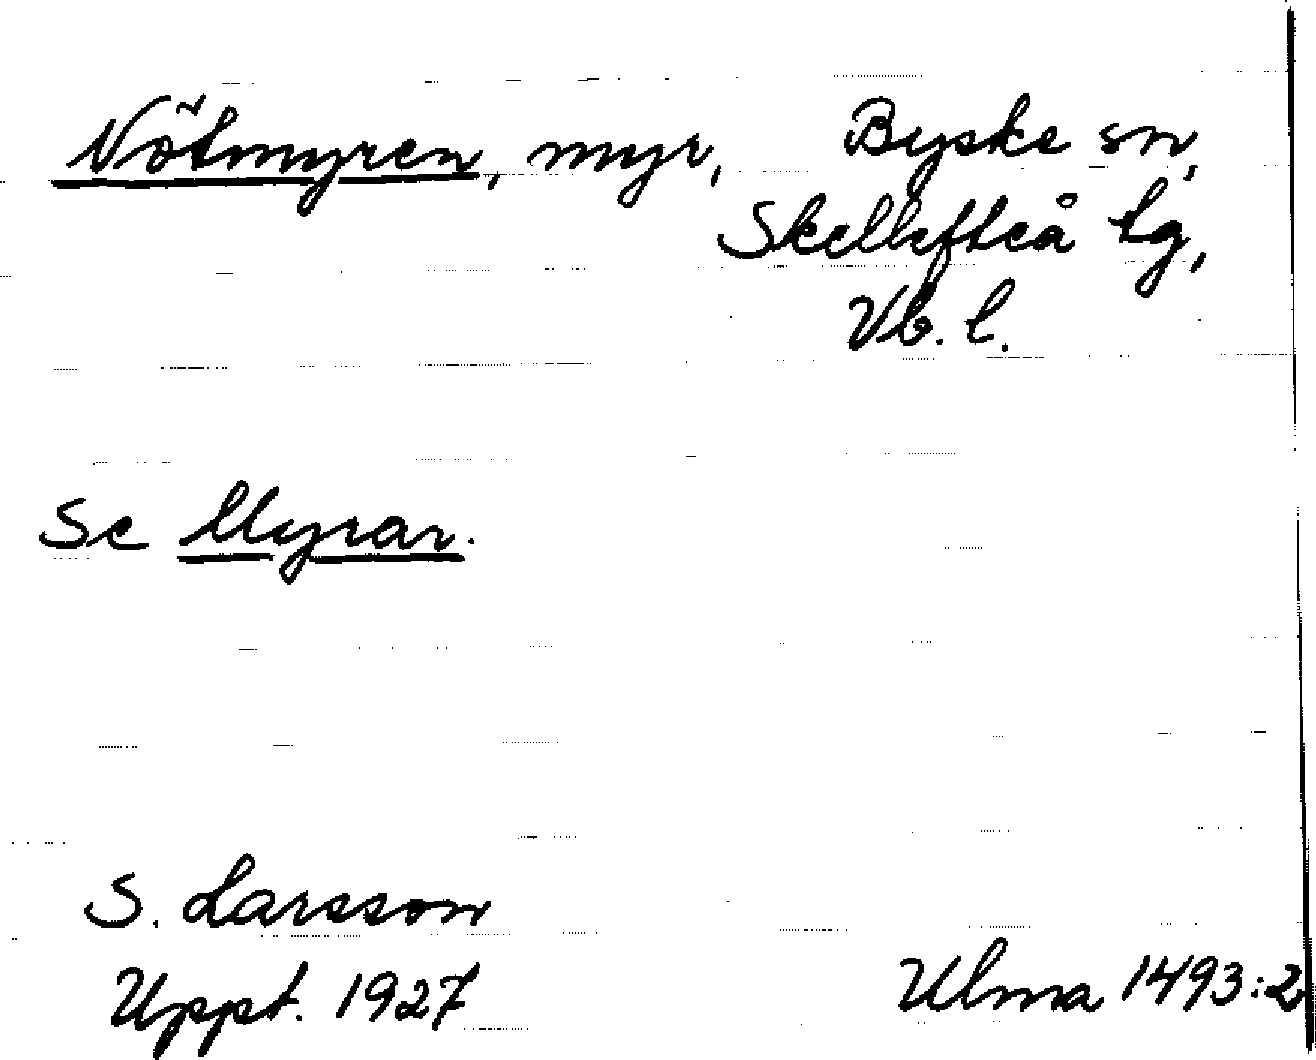 Nötmyren, myr, Byske sn,
Skellefteå tg,
Vb. l.
Se Myrar.
S. Larsson
Uppt. 1927
Ulma 1493:2